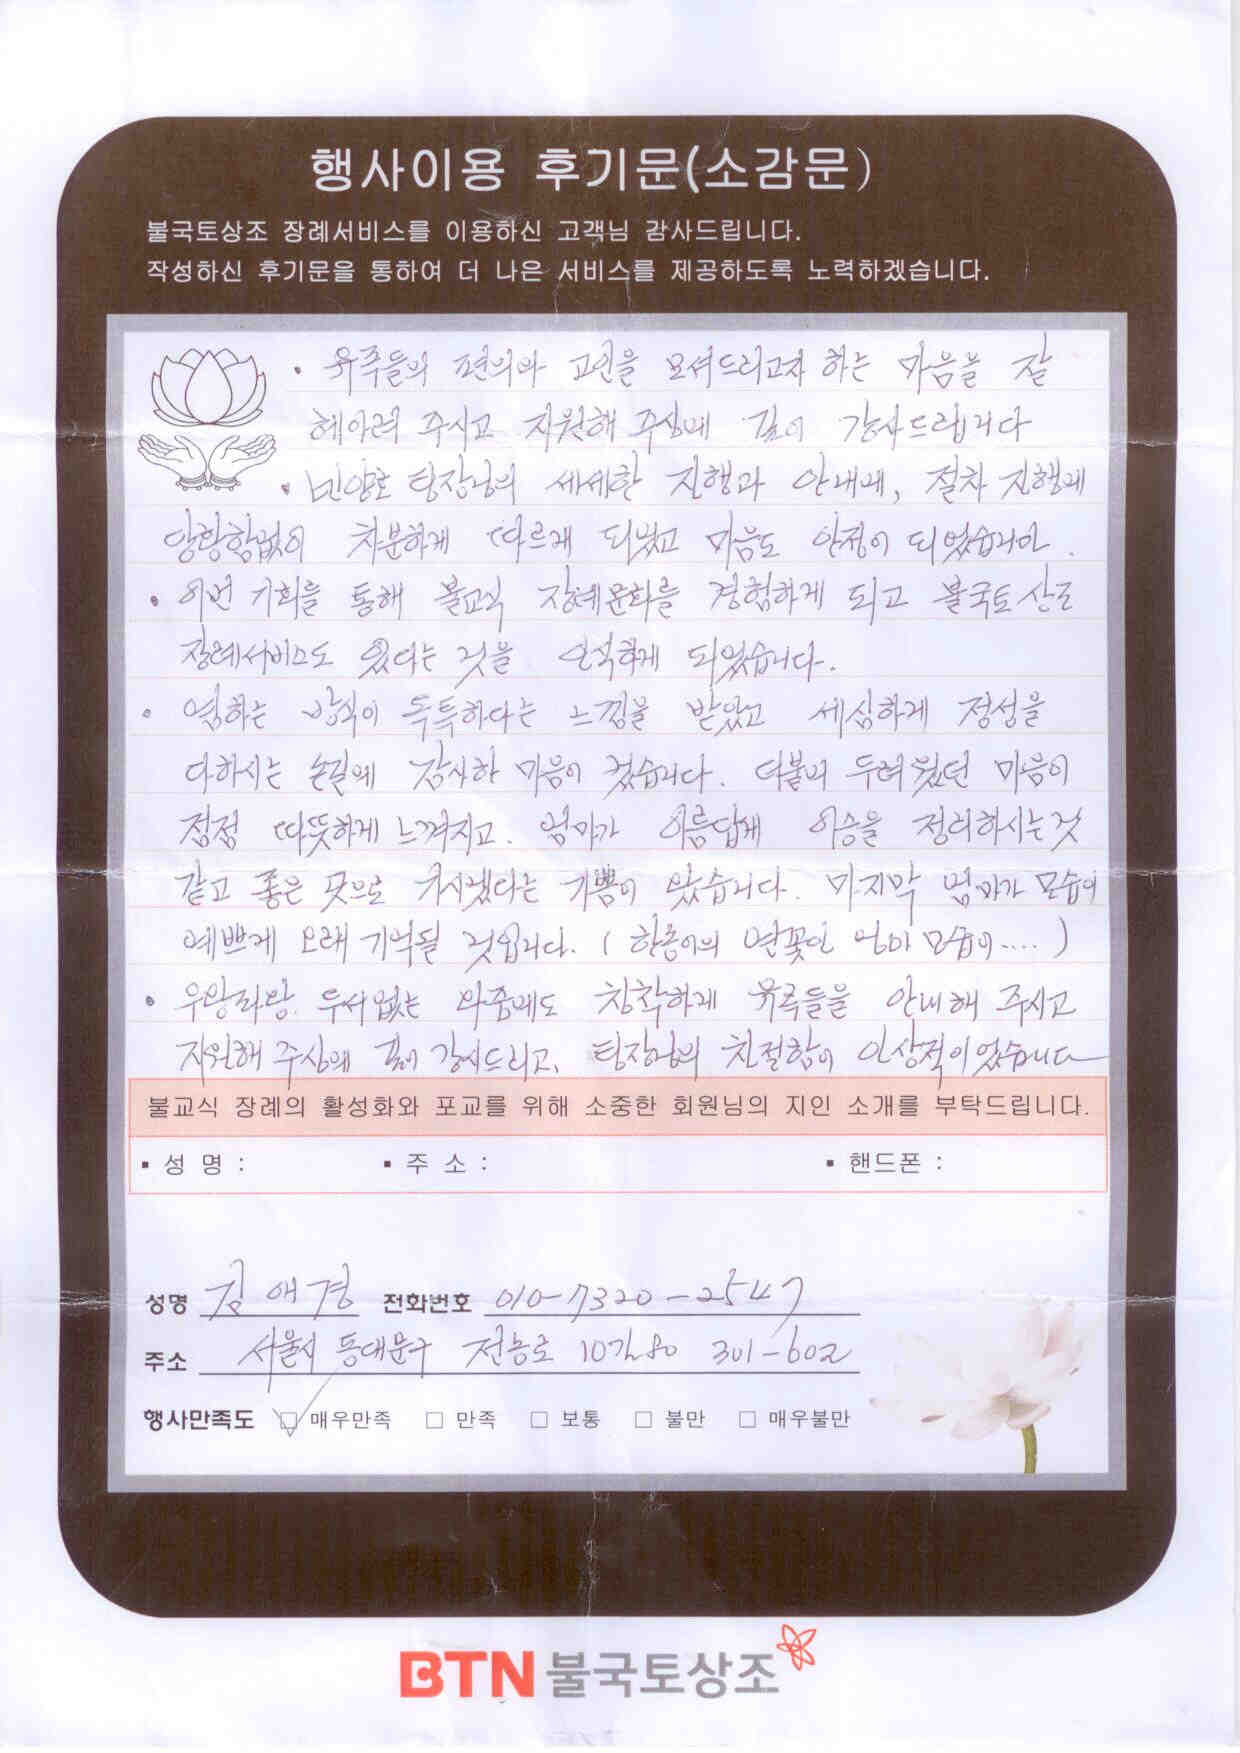 행사이용 후기문(소감문)
불국토상조 장례서비스를 이용하신 고객님 감사드립니다.
작성하신 후기문을 통하여 더 나은 서비스를 제공하도록 노력하겠습니다.
• 유족들의 편의와 고인을 모셔드리고자 하는 마음을 잘
헤아려 주시고 지원해 주심에 깊이 감사드립니다
• 팀장님의 세세한 진행과 안내에, 절차 진행에
당황함없이 차분하게 따르게 되었고 마음도 안정이 되었습니다.
• 이번 기회를 통해 불교식 장례문화를 경험하게 되고 불국토 상조
장례서비스도 있다는 것을 인식하게 되었습니다.
• 염하는 방식이 독특하다는 느낌을 받았고 세심하게 정성을
다하시는 손길에 감사한 마음이 컸습니다. 더불어 두려웠던 마음이
점점 따뜻하게 느껴지고. 엄마가 아름답게 이승을 정리하시는것
같고 좋은 곳으로 가시겠다는 기쁨이 왔습니다. 마지막 엄마가 모습이
예쁘게 오래 기억될 것입니다. ( 한송이의 연꽃인 엄마 모습이.... )
• 우왕좌왕. 두서없는 와중에도 침착하게 유족들을 안내해 주시고
지원해 주심에 깊이 감사드리고, 팀장님의 친절함이 인상적이었습니다
불교식 장례의 활성화와 포교를 위해 소중한 회원님의 지인 소개를 부탁드립니다.
▪ 성 명 : ▪ 주 소 : ▪ 핸드폰 :
성명 김애경 전화번호 010-7320-2547
주소 서울시 동대문구 전농로 10길 80 301-602
행사만족도 □ 매우만족 □ 만족 □ 보통 □ 불만 □ 매우불만
BTN 불국토상조